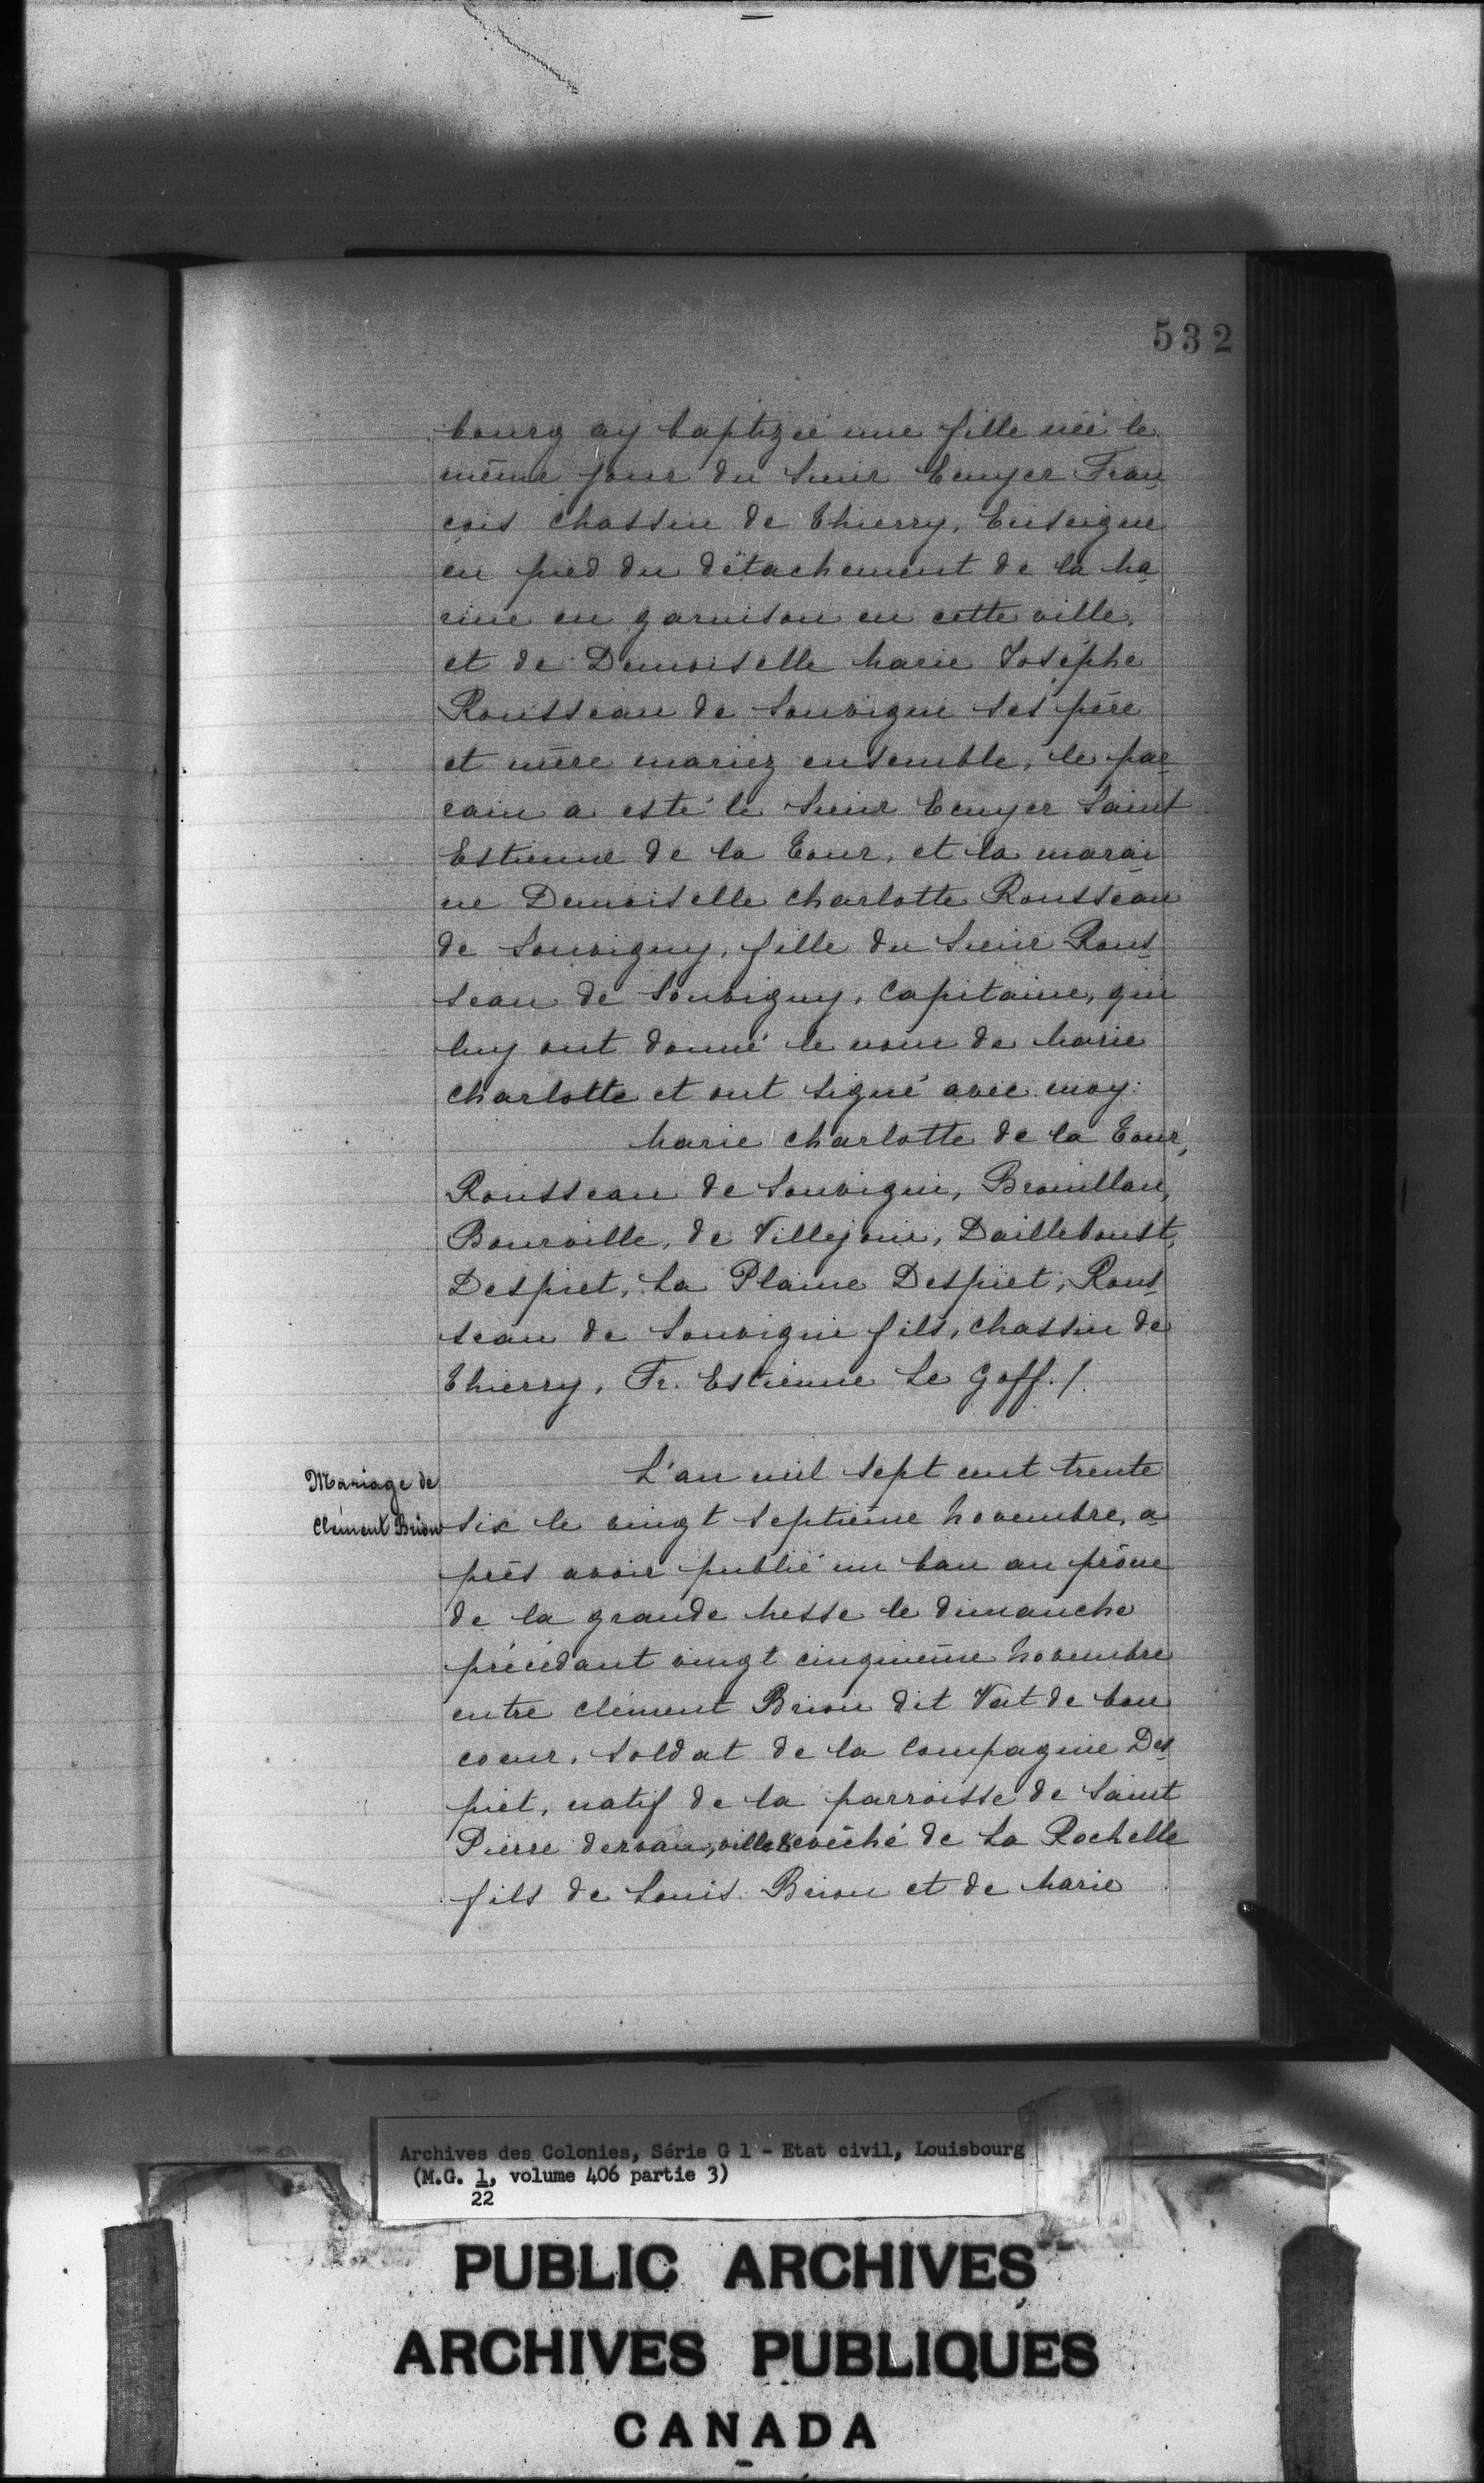 532
bourg ay baptizée une fille née le
même jour du Sieur Ecuyer Fran-
çois Chassin de Thierry, Enseigne
en pied du détachement de la Ma-
rine en garnison en cette ville,
et de Demoiselle Marie Josephe
Rousseau de Souvigni ses père
et mère mariez ensemble, le par-
rain a esté le Sieur Ecuyer Saint
Estienne de la Tour, et la marai-
ne Demoiselle Charlotte Rousseau
de Souvigny, fille du Sieur Rous-
seau de Souvigny, Capitaine, qui
luy ont donné le nom de Marie
Charlotte et ont signé avec moy.
Marie Charlotte de la Tour,
Rousseau de Souvigni, Brouillan,
Bourville, de Villejoui, Dailleboust,
Despiet, La Plaine Despiet, Rous-
seau de Souvigni fils, Chassin de
Thierry, Fr. Estienne Le Goff. /.
Mariage de
Clément Brion
L'an mil sept cent trente
six le vingt septième Novembre, a-
près avoir publié un ban au prône
de la grande Messe le dimanche
précédant vingt cinquième Novembre
entre Clément Brion dit Vat de bon
coeur, Soldat de la Compagnie Des-
piet, natif de la parroisse de Saint
Pierre ville evêché de La Rochelle
fils de Louis Brion et de Marie
Archives des Colonies, Série G 1 - Etat civil, Louisbourg
(M.G. 1, volume 406 partie 3)
22
PUBLIC ARCHIVES
ARCHIVES PUBLIQUES
CANADA